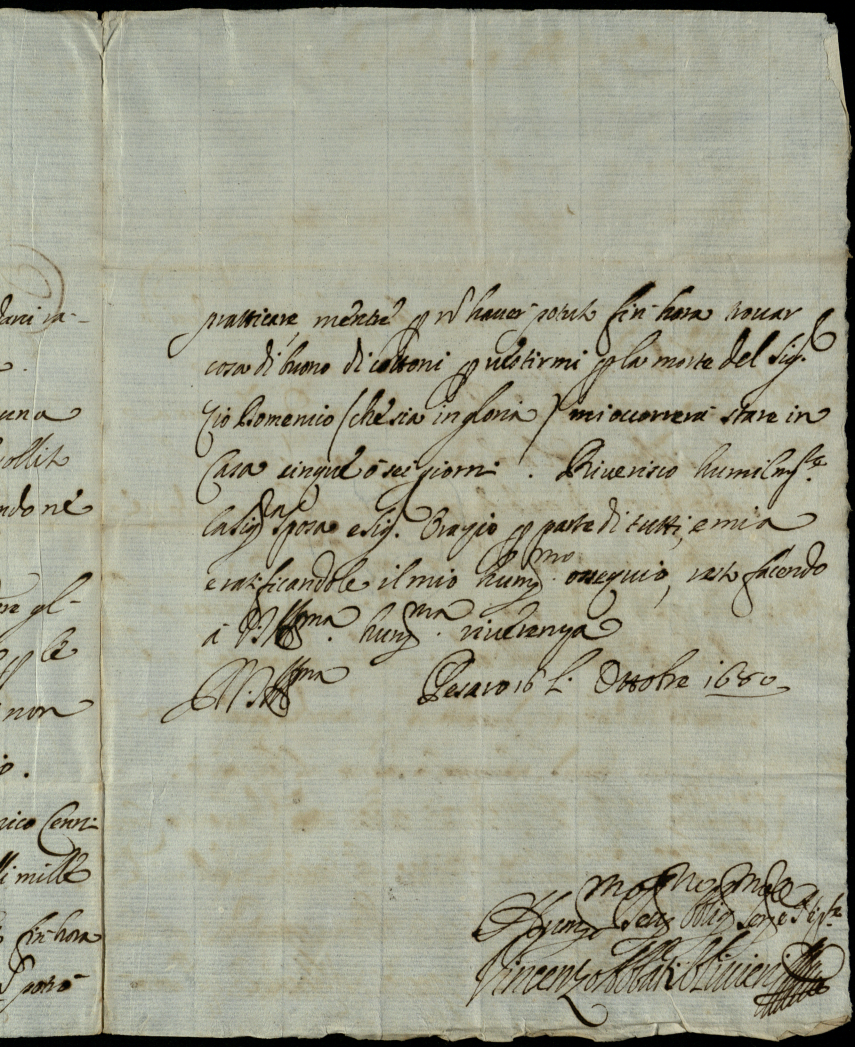 dani ra-
una
ndo nè
gl-
le
non
io.
nico Cenni
lli mille
fin hora
potrò
pratticare, mentre p nõ hauer potuto fin hora trouar
cosa di buono di cottoni p uestirmi p la morte del Sig.
Zio Domenico (che sia in gloria) mi occorrerà stare in
Casa cinque ò sei giorni. Riuerisco humilm.te
la Sig.ra Sposa e Sig. Orazio p parte di tutti, e mia
e ratificandole il mio hum.mo ossequio, resto facendo
à V.S. Ill.ma hum.ma riuerenza
V.S. Ill.ma Pesaro 16 Ottobre 1680
Vincenzo Abbati Oliuieri